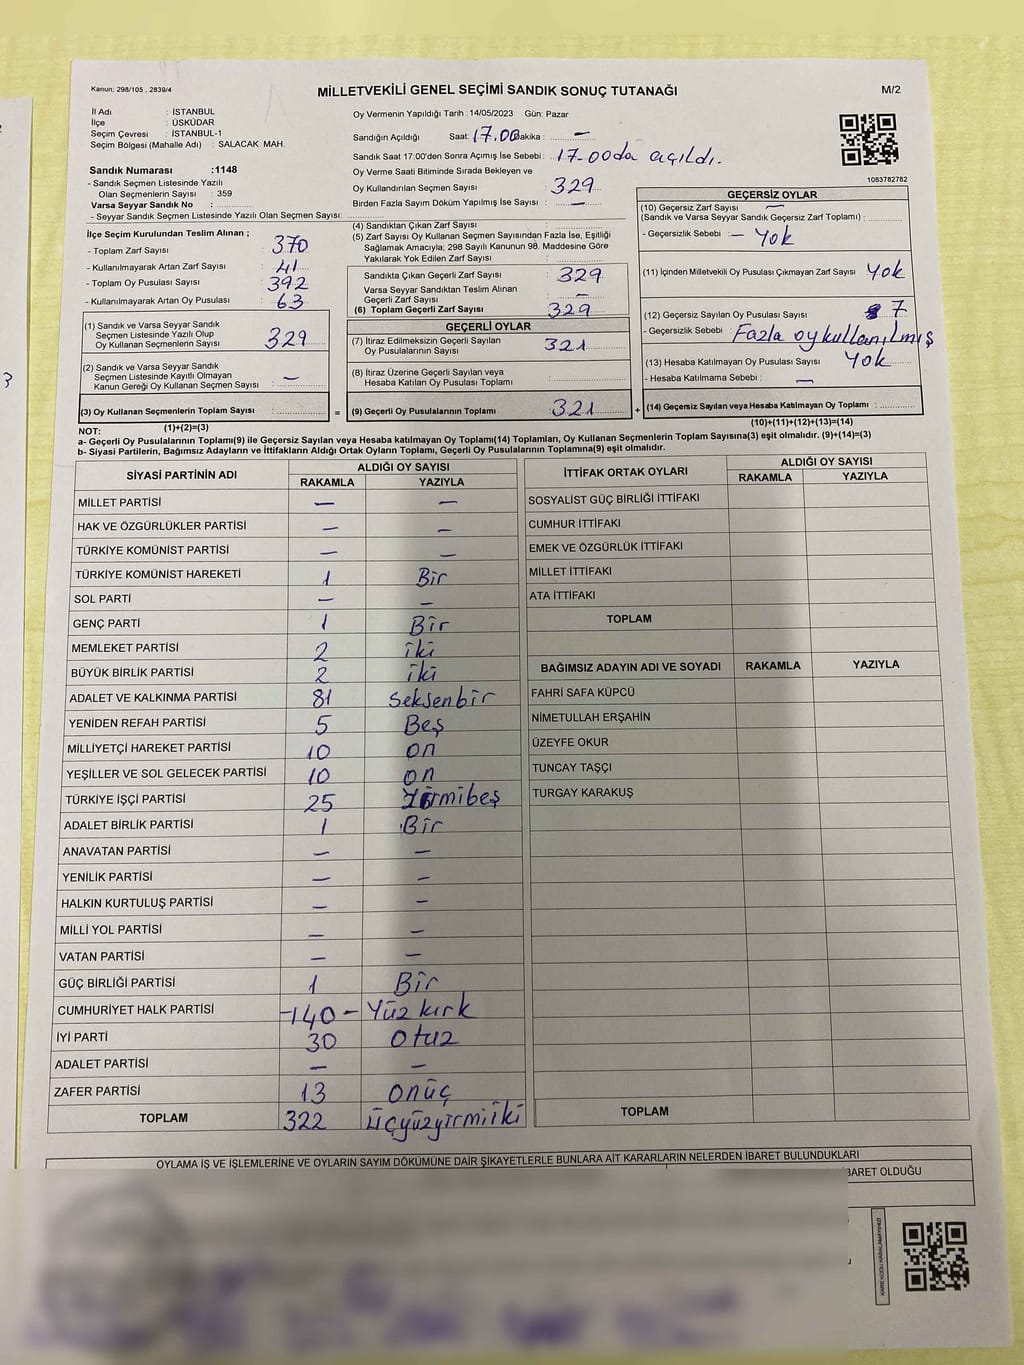 Kanun: 298/105 , 2839/4
MİLLETVEKİLİ GENEL SEÇİMİ SANDIK SONUÇ TUTANAĞI
M/2
İl Adı : İSTANBUL
İlçe : ÜSKÜDAR
Seçim Çevresi : İSTANBUL-1
Seçim Bölgesi (Mahalle Adı) : SALACAK MAH.
Sandık Numarası :1148
- Sandık Seçmen Listesinde Yazılı
Olan Seçmenlerin Sayısı : 359
Varsa Seyyar Sandık No :
- Seyyar Sandık Seçmen Listesinde Yazılı Olan Seçmen Sayısı:
Oy Vermenin Yapıldığı Tarih : 14/05/2023 Gün: Pazar
Sandığın Açıldığı Saat: 17.00 Dakika : —
Sandık Saat 17:00'den Sonra Açımış İse Sebebi : 17.00da açıldı.
Oy Verme Saati Bitiminde Sırada Bekleyen ve
Oy Kullandırılan Seçmen Sayısı : 329
Birden Fazla Sayım Döküm Yapılmış İse Sayısı : —
1083782782
İlçe Seçim Kurulundan Teslim Alınan ;
- Toplam Zarf Sayısı : 370
- Kullanılmayarak Artan Zarf Sayısı : 41
- Toplam Oy Pusulası Sayısı : 392
- Kullanılmayarak Artan Oy Pusulası : 63
(1) Sandık ve Varsa Seyyar Sandık
Seçmen Listesinde Yazılı Olup
Oy Kullanan Seçmenlerin Sayısı : 329
(2) Sandık ve Varsa Seyyar Sandık
Seçmen Listesinde Kayıtlı Olmayan
Kanun Gereği Oy Kullanan Seçmen Sayısı : —
(3) Oy Kullanan Seçmenlerin Toplam Sayısı :
(1)+(2)=(3)
(4) Sandıktan Çıkan Zarf Sayısı :
(5) Zarf Sayısı Oy Kullanan Seçmen Sayısından Fazla İse, Eşitliği
Sağlamak Amacıyla; 298 Sayılı Kanunun 98. Maddesine Göre
Yakılarak Yok Edilen Zarf Sayısı :
Sandıkta Çıkan Geçerli Zarf Sayısı : 329
Varsa Seyyar Sandıktan Teslim Alınan
Geçerli Zarf Sayısı : —
(6) Toplam Geçerli Zarf Sayısı : 329
GEÇERLİ OYLAR
(7) İtiraz Edilmeksizin Geçerli Sayılan
Oy Pusulalarının Sayısı : 321
(8) İtiraz Üzerine Geçerli Sayılan veya
Hesaba Katılan Oy Pusulası Toplamı :
= (9) Geçerli Oy Pusulalarının Toplamı : 321 +
GEÇERSİZ OYLAR
(10) Geçersiz Zarf Sayısı —
(Sandık ve Varsa Seyyar Sandık Geçersiz Zarf Toplamı) :
- Geçersizlik Sebebi : – Yok
(11) İçinden Milletvekili Oy Pusulası Çıkmayan Zarf Sayısı : Yok
(12) Geçersiz Sayılan Oy Pusulası Sayısı : 7
- Geçersizlik Sebebi : Fazla oy kullanılmış
(13) Hesaba Katılmayan Oy Pusulası Sayısı : Yok
- Hesaba Katılmama Sebebi : —
(14) Geçersiz Sayılan veya Hesaba Katılmayan Oy Toplamı :
(10)+(11)+(12)+(13)=(14)
NOT:
a- Geçerli Oy Pusulalarının Toplamı(9) ile Geçersiz Sayılan veya Hesaba katılmayan Oy Toplamı(14) Toplamları, Oy Kullanan Seçmenlerin Toplam Sayısına(3) eşit olmalıdır. (9)+(14)=(3)
b- Siyasi Partilerin, Bağımsız Adayların ve İttifakların Aldığı Ortak Oyların Toplamı, Geçerli Oy Pusulalarının Toplamına(9) eşit olmalıdır.
SİYASİ PARTİNİN ADI ALDIĞI OY SAYISI
RAKAMLA YAZIYLA
MİLLET PARTİSİ — —
HAK VE ÖZGÜRLÜKLER PARTİSİ — —
TÜRKİYE KOMÜNİST PARTİSİ — —
TÜRKİYE KOMÜNİST HAREKETİ 1 Bir
SOL PARTİ — —
GENÇ PARTİ 1 Bir
MEMLEKET PARTİSİ 2 iki
BÜYÜK BİRLİK PARTİSİ 2 iki
ADALET VE KALKINMA PARTİSİ 81 Seksenbir
YENİDEN REFAH PARTİSİ 5 Beş
MİLLİYETÇİ HAREKET PARTİSİ 10 on
YEŞİLLER VE SOL GELECEK PARTİSİ 10 on
TÜRKİYE İŞÇİ PARTİSİ 25 Yirmibeş
ADALET BİRLİK PARTİSİ 1 Bir
ANAVATAN PARTİSİ — —
YENİLİK PARTİSİ — —
HALKIN KURTULUŞ PARTİSİ — —
MİLLİ YOL PARTİSİ — —
VATAN PARTİSİ — —
GÜÇ BİRLİĞİ PARTİSİ 1 Bir
CUMHURİYET HALK PARTİSİ -140- Yüz kırk
İYİ PARTİ 30 Otuz
ADALET PARTİSİ — —
ZAFER PARTİSİ 13 onüç
TOPLAM 322 Üçyüzyirmiiki
İTTİFAK ORTAK OYLARI ALDIĞI OY SAYISI
RAKAMLA YAZIYLA
SOSYALİST GÜÇ BİRLİĞİ İTTİFAKI
CUMHUR İTTİFAKI
EMEK VE ÖZGÜRLÜK İTTİFAKI
MİLLET İTTİFAKI
ATA İTTİFAKI
TOPLAM
BAĞIMSIZ ADAYIN ADI VE SOYADI RAKAMLA YAZIYLA
FAHRİ SAFA KÜPCÜ
NİMETULLAH ERŞAHİN
ÜZEYFE OKUR
TUNCAY TAŞÇI
TURGAY KARAKUŞ
TOPLAM
OYLAMA İŞ VE İŞLEMLERİNE VE OYLARIN SAYIM DÖKÜMÜNE DAİR ŞİKAYETLERLE BUNLARA AİT KARARLARIN NELERDEN İBARET BULUNDUKLARI
İBARET OLDUĞU